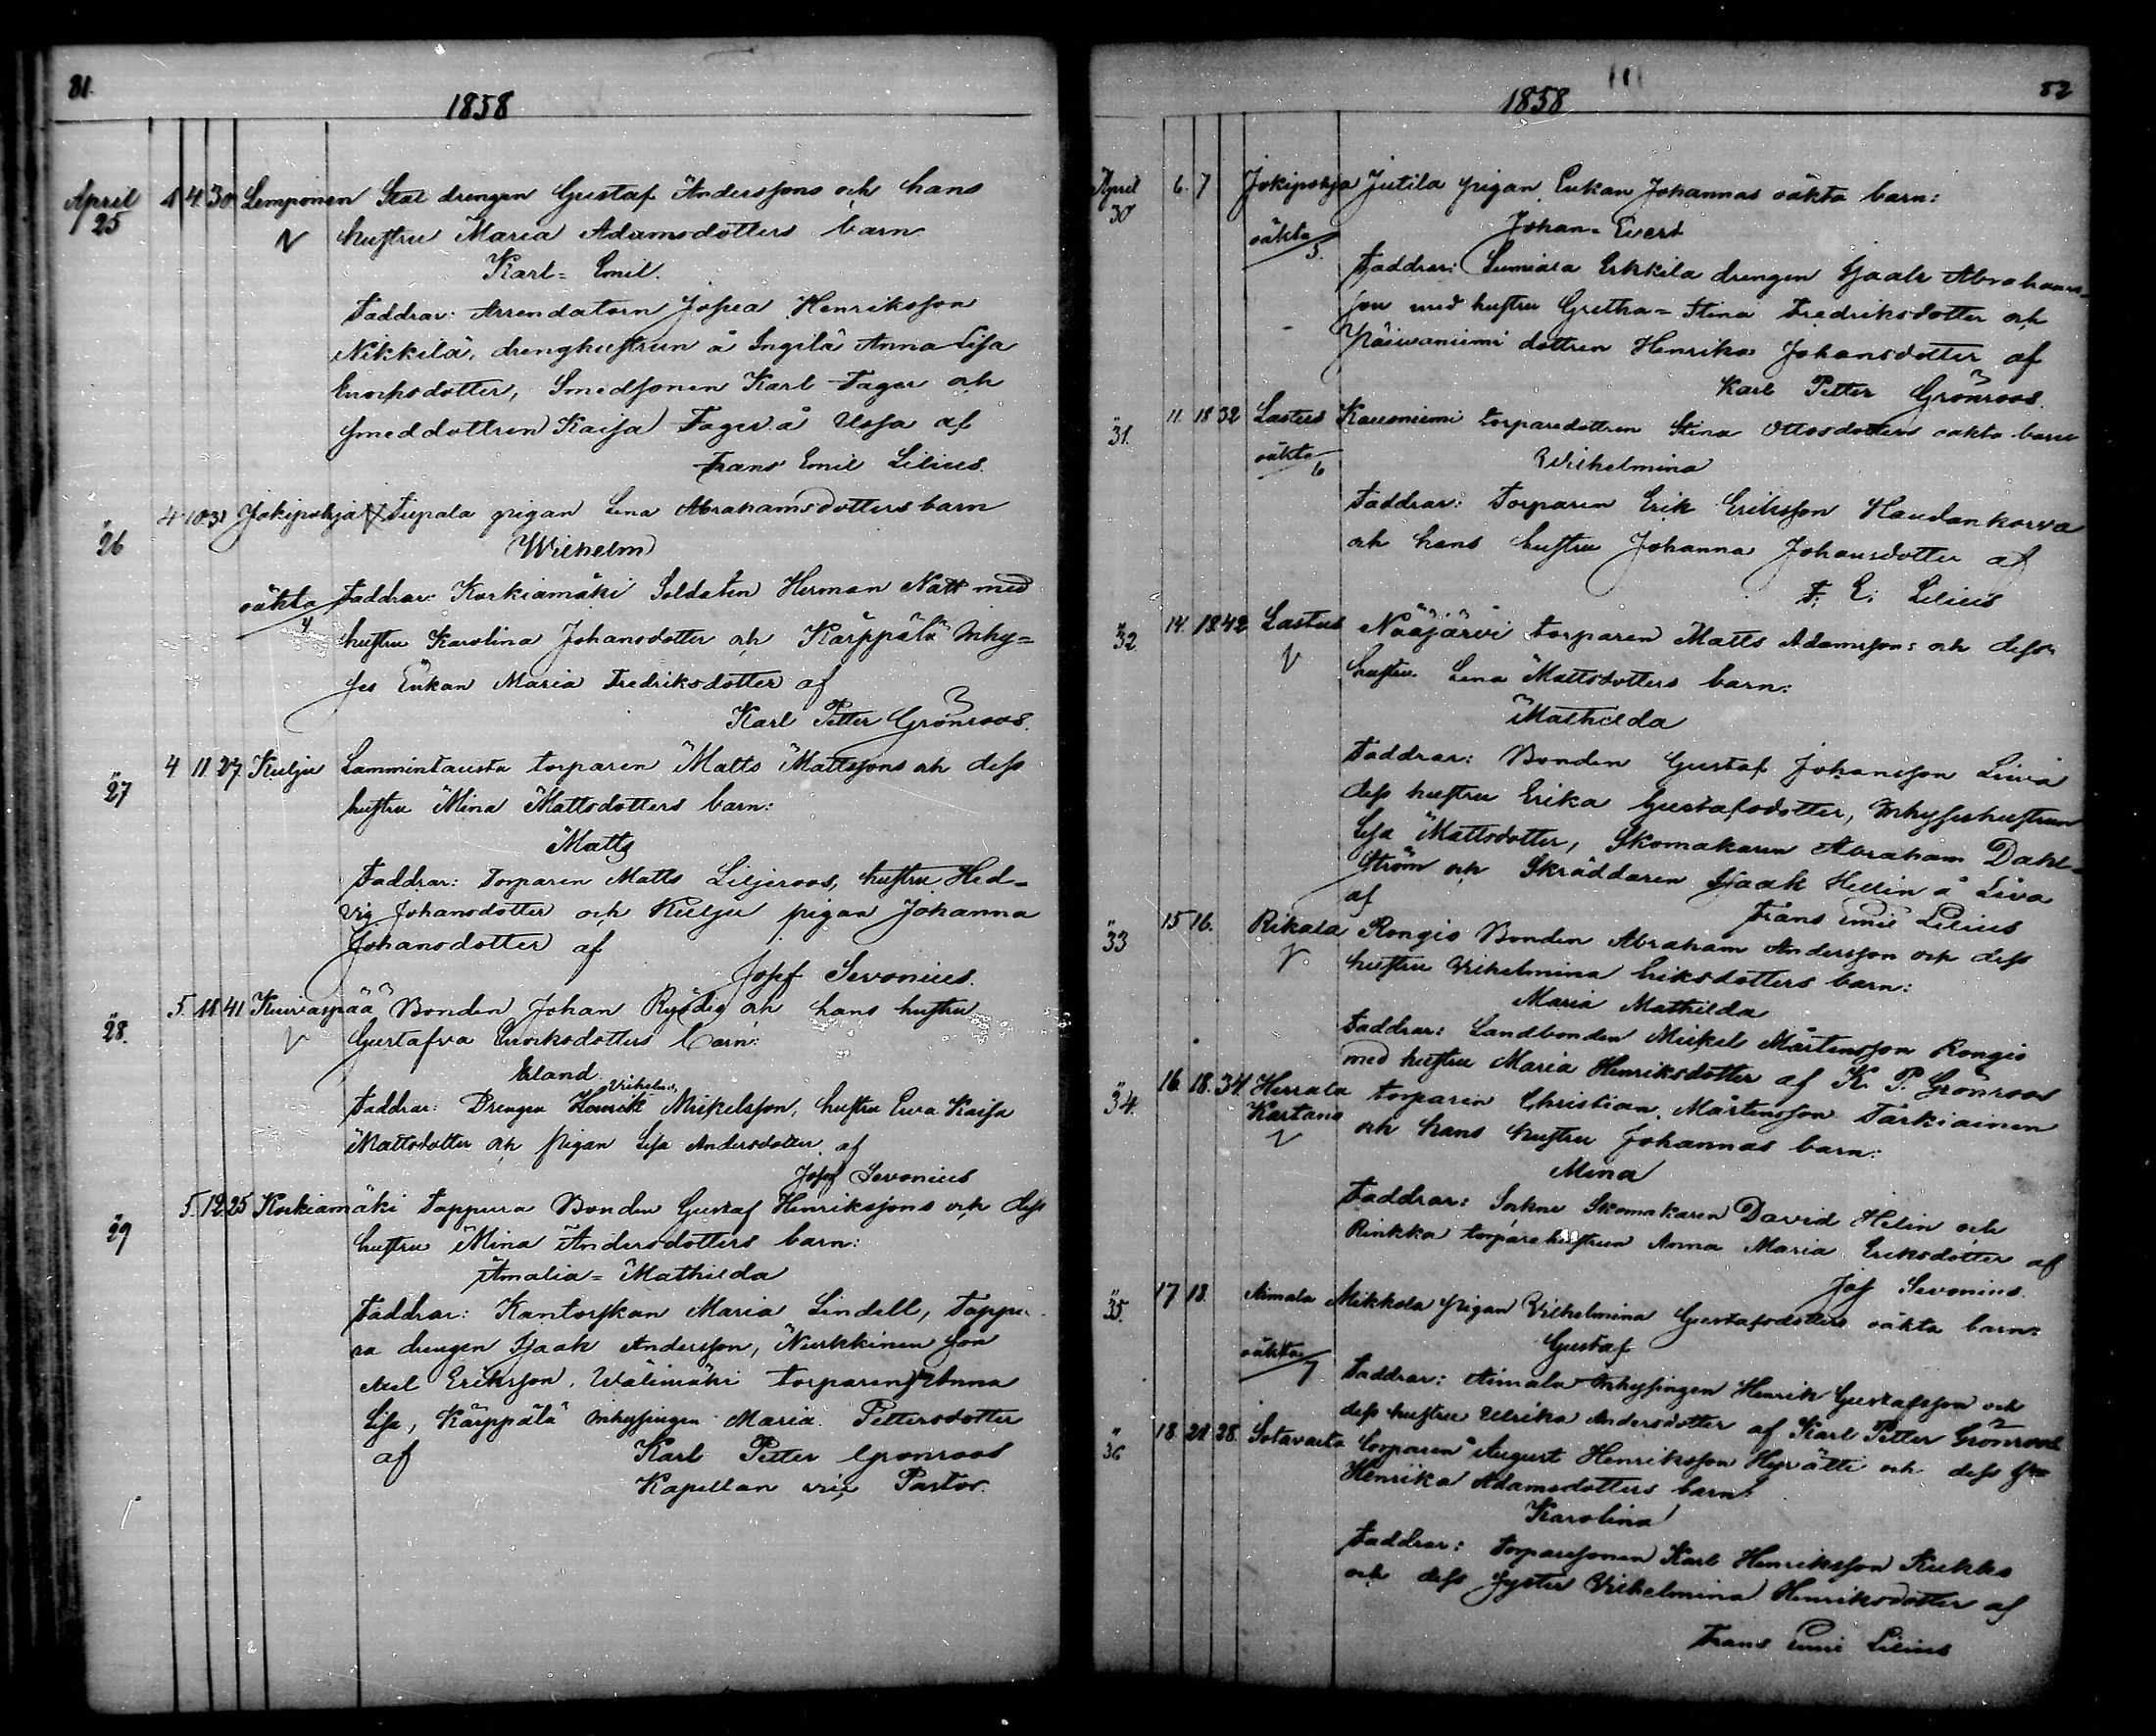 81.
1858
April 25 1 4 30 Lemponen Stat drengen Gustaf Anderssons och hans
hustru Maria Adamsdotters barn
Karl = Emil.
Faddrar: Arrendatorn Josua Henriksson
Nikkilä, drenghustrun å Ingilä Anna Lisa
Enoksdotter, Smedsonen Karl Fager och
smeddottren Kaisa Fager å Ussa af
Frans Emil Lilius.
" 26 4 10 31 Jokipohja Tiupala pigan Lena Abrahamsdotters barn
Wilhelm
oäkta 4 Faddrar: Korkiamäki Soldaten Herman Natt med
hustru Karolina Johansdotter och Kärppälä Inhy=
ses Enkan Maria Fredriksdotter af
Karl Petter Grönroos.
" 27 4 11 27 Kulju Lammintausta torparen Matts Mattssons och dess
hustru Mina Mattsdotters barn:
Matts
Faddrar: Torparen Matts Liljeroos, hustru Hed-
vig Johansdotter och Kulju pigan Johanna
Johansdotter af
Josef Sevonius.
" 28. 5. 11 41 Kuivaspää Bonden Johan Rysdig och hans hustru
Gustafva Enoksdotters barn:
Erland
Wilhelm
Faddrar: Drengen Henrik Mickelsson, hustru Eva Kaisa
Mattsdotter och pigan Lisa Andersdotter af
Josef Sevonius
" 29 5. 12 25 Korkiamäki Tappura Bonden Gustaf Henrikssons och dess
hustru Mina Andersdotters barn:
Amalia = Mathilda
Faddrar: Kantorskan Maria Lindell, Tappu-
ra drengen Isaak Andersson, Nurkkinen son
Axel Eriksson, Wälimäki torparens Anna
Lisa, Kärppälä Inhysingen Maria Pettersdotter
af Karl Petter Grönroos
Kapellan vice Pastor.
82
1858
April 30 6. 7 Jokipohja Jutila pigan Enkan Johannas oäkta barn:
oäkta 5. Johan = Evert
Faddrar: Sumiala Erkkila drengen Isaak Abrahams-
son med hustru Gretha = Stina Fredriksdotter och
Päivaniemi dottren Henrika Johansdotter af
Karl Petter Grönroos.
" 31. 11. 18 32 Lastus Kauoniemi torparedottren Stina Ottosdotters oäkta barn
oäkta 6 Wilhelmina
Faddrar: Torparen Erik Eriksson Haudankorva
och hans hustru Johanna Johansdotter af
F. E. Lilius
" 32 14. 18 42 Lastus Nääjärvi torparen Matts Adamsson: och dess
hustru Lena Mattsdotters barn:
Mathilda
Faddrar: Bonden Gustaf Johansson Liuva
dess hustru Erika Gustafsdotter, Inhyseshustrun
Lisa Mattsdotter, Skomakaren Abraham Dahl-
ström och Skräddaren Isaak Hellin å Liva
af Frans Emil Lilius
" 33 15 16. Rikala Rongio Bonden Abraham Andersson och dess
hustru Wilhelmina Eriksdotters barn:
Maria Mathilda
Faddrar: Landbonden Mickel Mårtensson Rongio
med hustru Maria Henriksdotter af K. P. Grönroos
" 34. 16 18. 34 Herrala Kartano torparen Christian Mårtensson Tarkiainen
och hans hustru Johannas barn:
Mina
Faddrar: Sockne Skomakaren David Helin och
Rinkka torparehustrun Anna Maria Eriksdotter af
Jos Sevonius.
" 35. 17 18. Aimala Mikkola pigan Wilhelmina Gustafsdotters oäkta barn:
oäkta 7 Gustaf
Faddrar: Aimala Inhysingen Henrik Gustafsson och
dess hustru Ulrika Andersdotter af Karl Petter Grönroos
" 36 18. 21 28. Sotavalta torparen August Henriksson Hyvätti och dess
Henrika Adamsdotters barn:
Karolina
Faddrar: Torparesonen Karl Henriksson Kukko
och dess syster Wilhelmina Henriksdotter af
Frans Emil Lilius